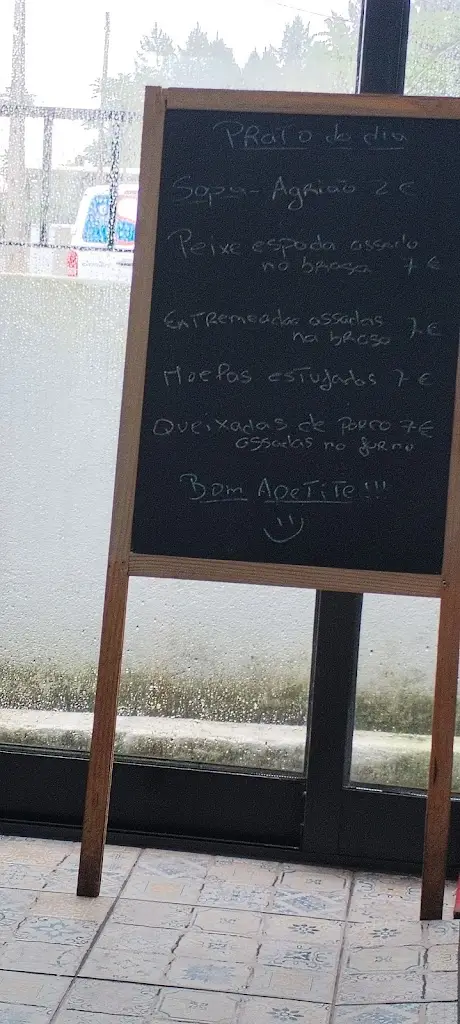 PRATO do dia
Sopa - Agrião 2 €
Peixe espada assado
na brasa 7 €
Entremeadas assadas 7 €
na brasa
Moelas estufadas 7 €
Queixadas de porco 7 €
assadas no forno
Bom Apetite!!!